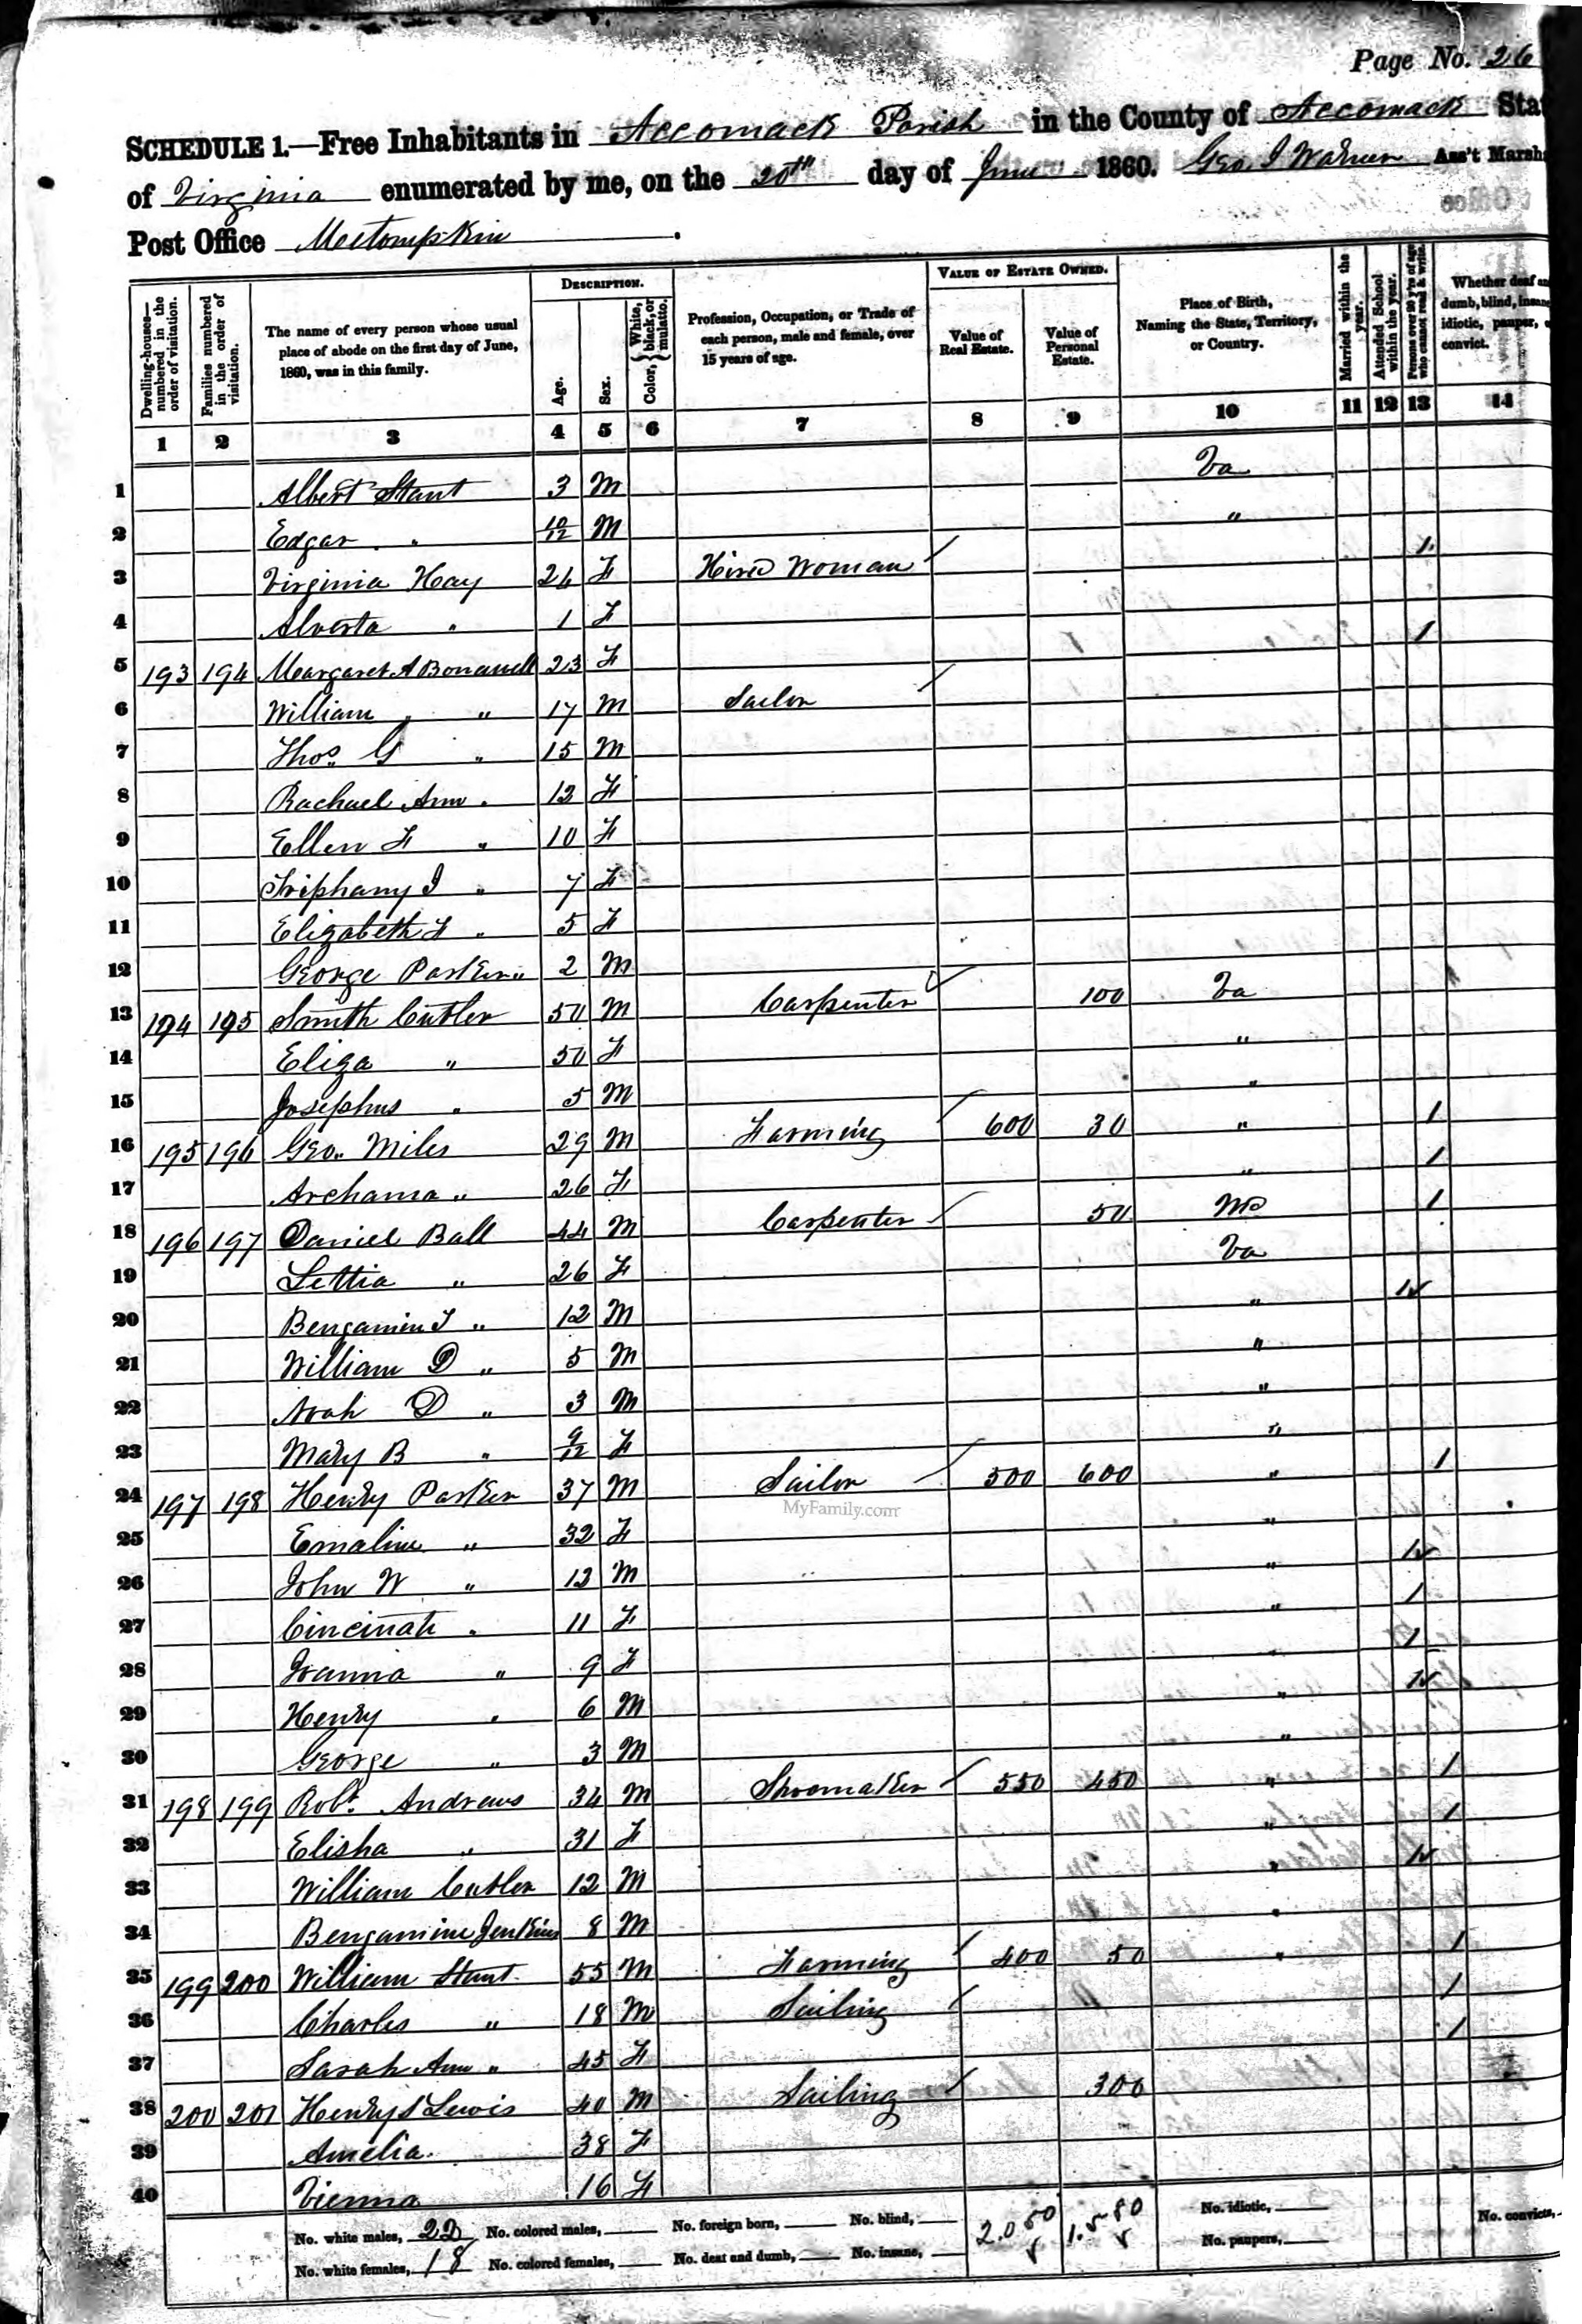 Page No. 26
SCHEDULE 1.—Free Inhabitants in Accomack Parish in the County of Accomack Stat
of Virginia enumerated by me, on the 20th day of June 1860. Geo. J Warner Ass't Marsh
Post Office Metompkin
Dwelling-houses—numbered in the order of visitation. Families numbered in the order of visitation. The name of every person whose usual place of abode on the first day of June, 1860, was in this family. DESCRIPTION. Age. Sex. Color, White, black, or mulatto. Profession, Occupation, or Trade of each person, male and female, over 15 years of age. VALUE OF ESTATE OWNED. Value of Real Estate. Value of Personal Estate. Place of Birth, Naming the State, Territory, or Country. Married within the year. Attended School within the year. Persons over 20 y'rs of age who cannot read & write. Whether deaf and dumb, blind, insane, idiotic, pauper, convict.
1 2 3 4 5 6 7 8 9 10 11 12 13 14
1 Albert Stant 3 M Va
2 Edgar " 10/12 M "
3 Virginia Hay 26 F Hired Woman 1
4 Alverta " 1 F
5 193 194 Margaret A Bonawell 23 F 1
6 William " 17 M Sailor
7 Thos. G " 15 M
8 Rachael Ann " 12 F
9 Ellen F " 10 F
10 J " 7 F
11 Elizabeth F " 5 F
12 George Parker " 2 M
13 194 195 Smith Cutler 50 M Carpenter 100 Va
14 Eliza " 50 F "
15 Josephus " 5 M "
16 195 196 Geo. Miles 29 M Farming 600 30 " 1
17 Archama " 26 F " 1
18 196 197 Daniel Ball 44 M Carpenter 50 Md 1
19 Lettia " 26 F Va
20 Bengamin T " 12 M " 1
21 William D " 5 M "
22 Noah D " 3 M "
23 Mary B " 9/12 F "
24 197 198 Henry Parker 37 M Sailor 500 600 " 1
MyFamily.com
25 Emaline " 32 F "
26 John W " 13 M " 1
27 Cincinati " 11 F " 1
28 Joanna " 9 F " 1
29 Henry " 6 M " 1
30 George " 3 M "
31 198 199 Robt. Andrews 34 M Shoemaker 550 450 " 1
32 Elisha " 31 F " 1
33 William Cutler 12 M " 1
34 Bengamine Jenkins 8 M "
35 199 200 William Stant 55 M Farming 400 50 " 1
36 Charles " 18 M Sailing 1
37 Sarah Ann " 45 F 1
38 200 201 Henry S Lewis 40 M Sailing 300
39 Amelia 38 F
40 Vienna 16 F
No. white males, 22 No. colored males, No. foreign born, No. blind, 2.050 1.580 No. idiotic, No. convicts,
No. white females, 18 No. colored females, No. deaf and dumb, No. insane, No. paupers,